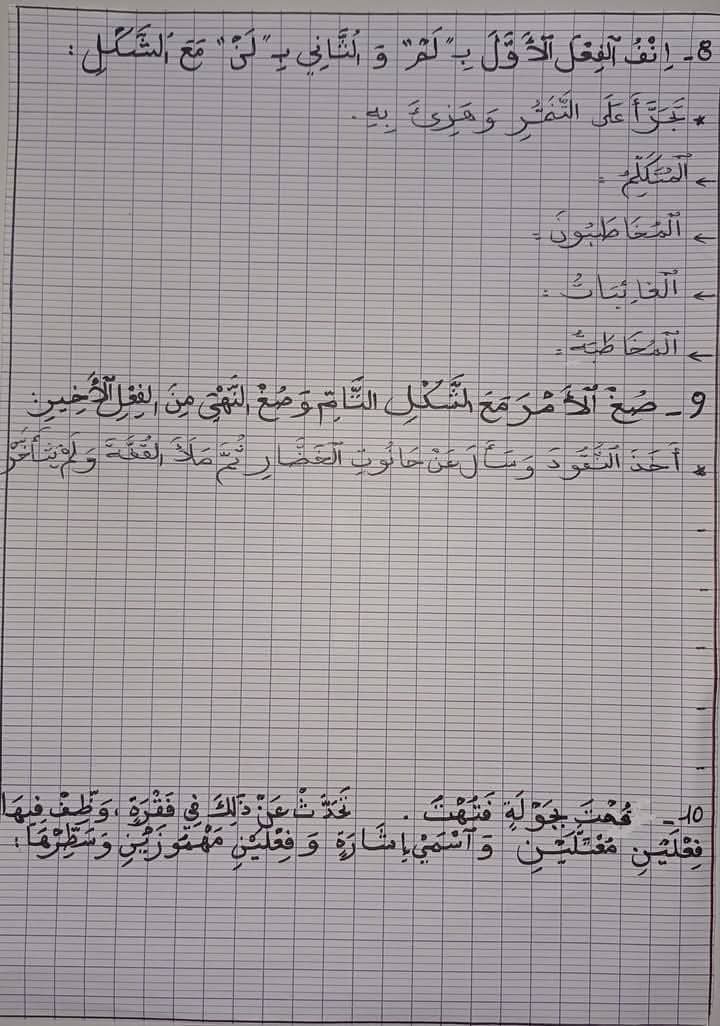 8- اِنْفُ الْفِعْلَ الْأَوَّلَ بِـ "لَمْ" وَ الثَّانِي بِـ "لَنْ" مَعَ الشَّكْلِ :
* تَجَرَّأَ عَلَى التَّنَمُّرِ وَ هَزِئَ بِهِ .
← الْمُتَكَلِّمُ :
← الْمُخَاطَبُونَ :
← الْغَائِبَاتُ :
← الْمُخَاطَبَةُ :
9- صُغْ الْأَمْرَ مَعَ الشَّكْلِ التَّامِّ وَ صُغْ النَّهْيَ مِنَ الفِعْلِ الْأَخِيرِ :
* أَخَذَ النُّقُودَ وَ سَأَلَ عَنْ حَانُوتِ الْخَضَّارِ ثُمَّ مَلَأَ الْقُفَّةَ وَ لَمْ يَتَأَخَّرْ
-
-
-
-
-
10- قُمْتَ بِجَوْلَةٍ فَتُهْتَ . تَحَدَّثْ عَنْ ذَلِكَ فِي فَقْرَةٍ ، وَظِّفْ فِيهَا
فِعْلَيْنِ مُعْتَلَّيْنِ وَ آسْمَيْ إِشَارَةٍ وَ فِعْلَيْنِ مَهْمُوزَيْنِ وَ سَطِّرْهَا :